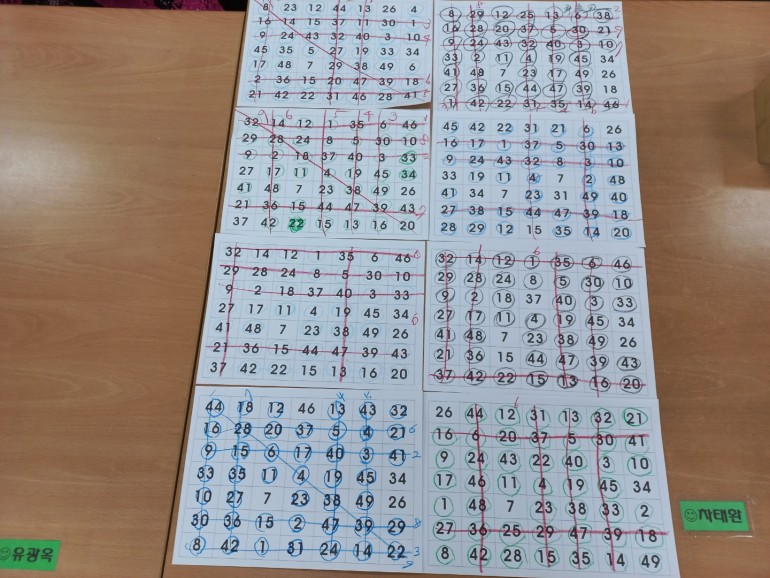 8 23 12 44 13 26 4
16 14 15 37 11 30 1
9 24 43 32 40 3 10
45 35 5 27 19 33 34
17 48 7 29 38 49 6
2 36 15 20 47 39 18
21 42 22 31 46 28 41
8 29 12 25 13 6 38
16 28 20 37 5 30 21
9 24 43 32 40 3 10
33 2 11 4 19 45 34
41 48 7 23 17 49 26
27 36 15 44 47 39 18
1 42 22 31 35 14 46
32 14 12 1 35 6 46
29 28 24 8 5 30 10
9 2 18 37 40 3 33
27 17 11 4 19 45 34
41 48 7 23 38 49 26
21 36 15 44 47 39 43
37 42 22 15 13 16 20
45 42 22 31 21 6 26
16 17 1 37 5 30 13
9 24 43 32 8 3 10
33 19 11 4 7 2 48
41 34 7 23 31 49 40
27 38 15 44 47 39 18
28 29 12 15 35 14 20
32 14 12 1 35 6 46
29 28 24 8 5 30 10
9 2 18 37 40 3 33
27 17 11 4 19 45 34
41 48 7 23 38 49 26
21 36 15 44 47 39 43
37 42 22 15 13 16 20
32 14 12 1 35 6 46
29 28 24 8 5 30 10
9 2 18 37 40 3 33
27 17 11 4 19 45 34
41 48 7 23 38 49 26
21 36 15 44 47 39 43
37 42 22 15 13 16 20
44 18 12 46 13 43 32
16 28 20 37 5 4 21
9 15 6 17 40 3 41
33 35 11 4 19 45 34
10 27 7 23 38 49 26
30 36 15 2 47 39 29
8 42 1 31 24 14 22
26 44 12 31 13 32 21
16 6 20 37 5 30 41
9 24 43 22 40 3 10
17 46 11 4 19 45 34
1 48 7 23 38 33 2
27 36 25 29 47 39 18
8 42 28 15 35 14 49
유광옥
사태완